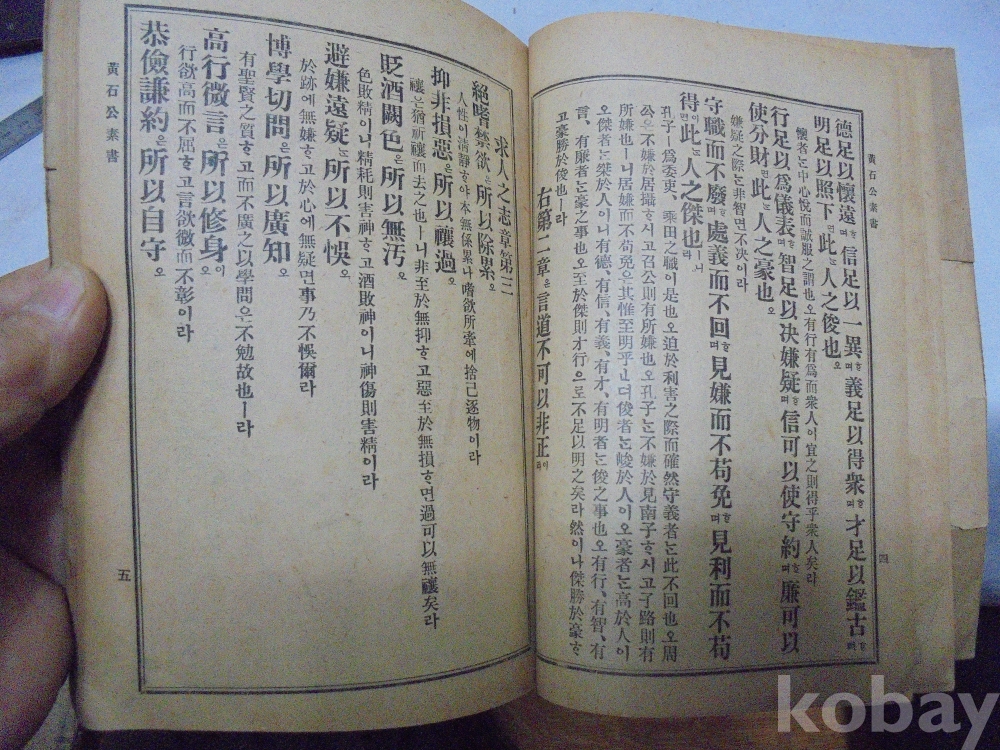 黃石公素書
德足以懷遠며信足以一異며義足以得衆며才足以鑑古며
明足以照下면此人之俊也오
懷者는中心悅而誠服之謂也오有行有爲而衆人이宜之則得乎衆人矣라
行足以爲儀表며智足以决嫌疑며信可以使守約며廉可以
使分財면此人之豪也오
嫌疑之際는非智면不决이라
守職而不廢며處義而不回며見嫌而不苟免며見利而不苟
得이면此人之傑也라
孔子ㅣ爲委吏、乘田之職이是也오迫於利害之際而確然守義者는此不回也오周
公은不嫌於居攝ᄒᆞ시고召公則有所嫌也오孔子는不嫌於見南子ᄒᆞ시고子路則有
所嫌也ㅣ니居嫌而不苟免은其惟至明乎ᅟᅵᆫ뎌俊者는峻於人이오豪者는高於人이
오傑者는桀於人이니有德、有信、有義、有才、有明者는俊之事也오有行、有智、有
言、有廉者는豪之事也오至於傑則才行으로不足以明之矣라然이나傑勝於豪ᄒᆞ
고豪勝於俊也ㅣ라
右第二章은言道不可以非正이라
四
求人之志章第三
絕嗜禁欲은所以除累오
人性이清靜ᄒᆞ야本無係累나嗜欲所牽에捨己逐物이라
抑非損惡은所以禳過오
禳은猶祈禳而去之也ㅣ니非至於無抑ᄒᆞ고惡至於無損ᄒᆞ면過可以無禳矣라
貶酒闕色은所以無汚오
色敗精이니精耗則害神ᄒᆞ고酒敗神이니神傷則害精이라
避嫌遠疑는所以不悞오
於跡에無嫌ᄒᆞ고於心에無疑면事乃不悞爾라
博學切問은所以廣知오
有聖賢之質ᄒᆞ고而不廣之以學問은不勉故也ㅣ라
高行微言은所以修身이오
行欲高而不屈ᄒᆞ고言欲微而不彰이라
恭儉謙約은所以自守오
黃石公素書
五
kobay